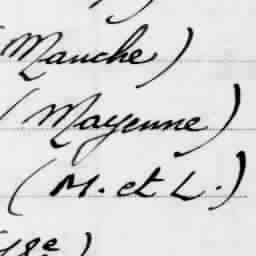 (Manche)
(Mayenne)
(M. et L.)
18e)